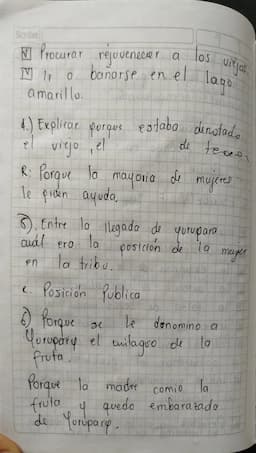 Scribe
Procurar rejuvenecer a los viejas
Ir a bañarse en el lago
amarillo.
4.) Explicar porque estaba denotado
el viejo, el de
R. Porque la mayoria de mujeres
le piden ayuda.
5). Entre la llegada de yurupara
cual era la posición de la mujer
en la tribu.
Posición Publica
6) Porque se le denomino a
Yurupary el milagro de la
fruta.
Porque la madre comio la
fruta y quedo embarazada
de Yurupary.